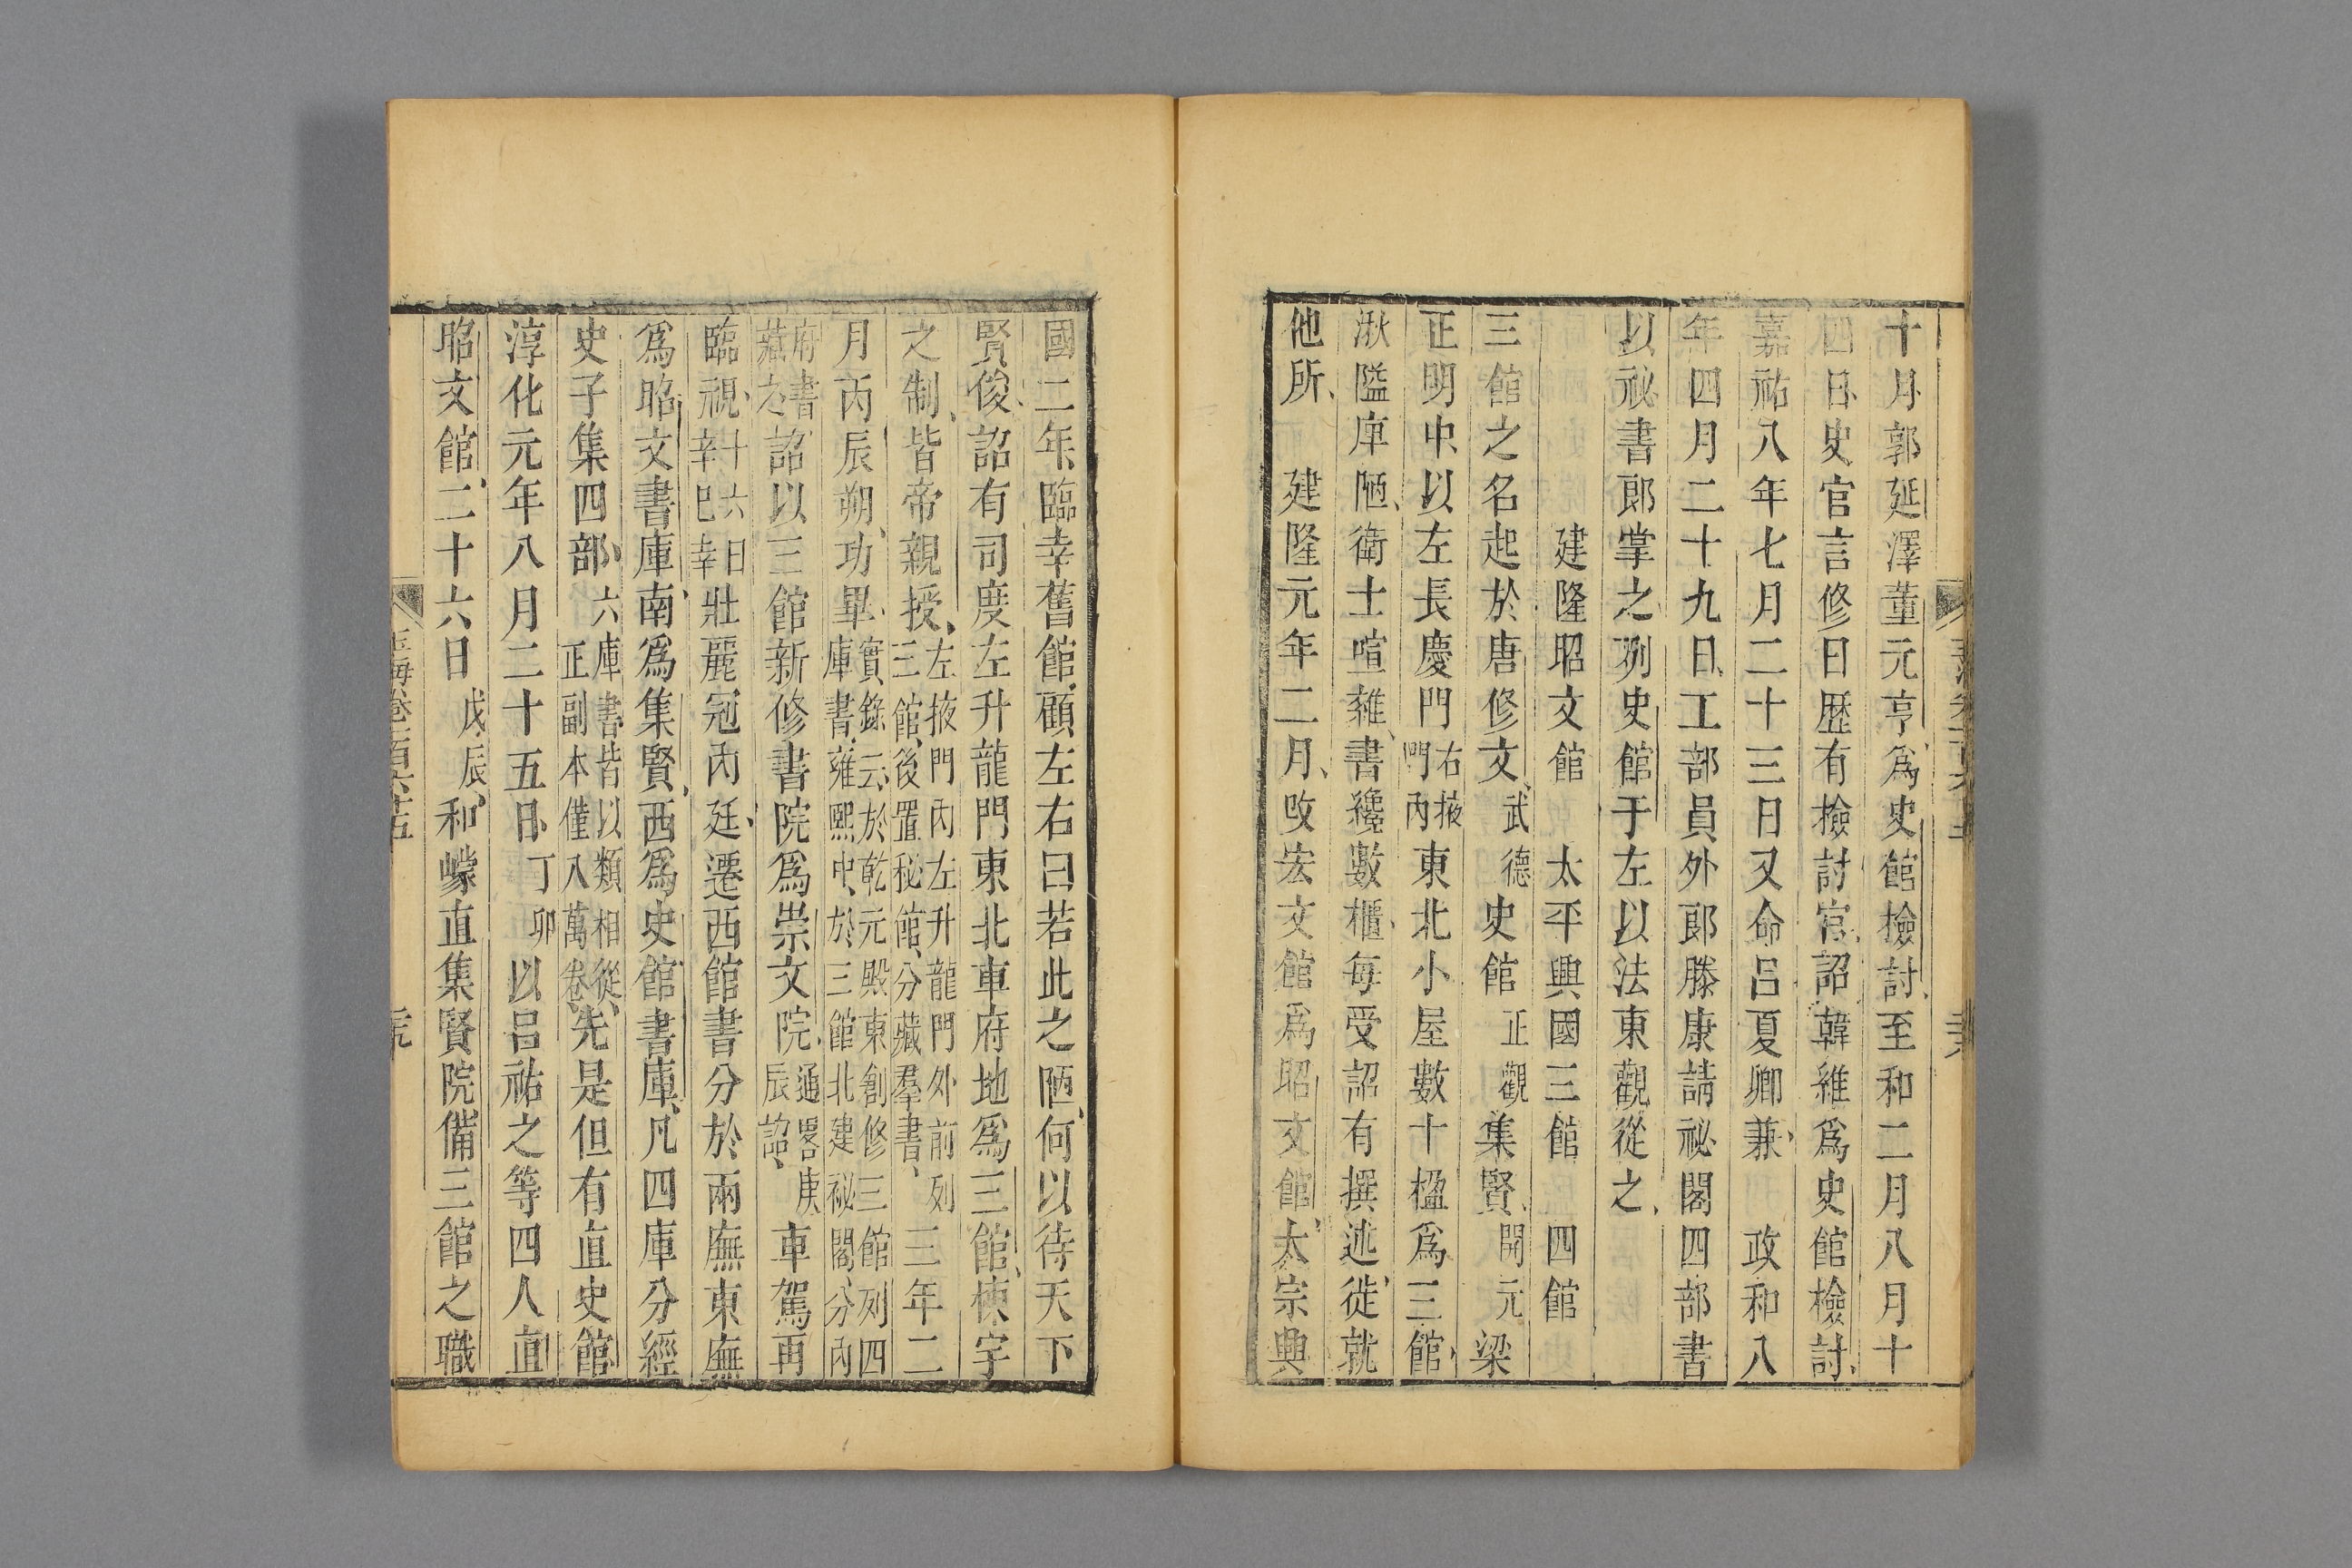 十月郭延澤董元亨爲史館檢討至和二月八月十
四日史官言修日歴有檢討官詔韓維爲史館檢討
嘉祐八年七月二十三日又命呂夏卿兼　政和八
年四月二十九日工部員外郎滕康請祕閣四部書
以祕書郎掌之列史館于左以法東觀從之
建隆昭文館　太平興國三館　四館
三館之名起於唐修文武德史館正觀集賢開元梁
正明中以左長慶門右掖門內東北小屋數十楹爲三館
湫隘庳陋衛士喧雜書纔數櫃每受詔有撰述徙就
他所　建隆元年二月改宏文館爲昭文館太宗興
國二年臨幸舊館顧左右曰若此之陋何以待天下
賢俊詔有司度左升龍門東北車府地爲三館棟宇
之制皆帝親授左掖門內左升龍門外前列三館後置秘館分藏羣書三年二
月丙辰朔功畢實錄云於乾元殿東創修三館列四庫書雍熙中於三館北建祕閣分內
府書藏之詔以三館新修書院爲崇文院通畧庚辰詔車駕再
臨視十六日辛巳幸壯麗冠內廷遷西館書分於兩廡東廡
爲昭文書庫南爲集賢西爲史館書庫凡四庫分經
史子集四部六庫書皆以類相從正副本僅八萬卷先是但有直史館
淳化元年八月二十五日丁卯以呂祐之等四人直
昭文館二十六日戊辰和㠓直集賢院備三館之職
玉海卷一百六十五